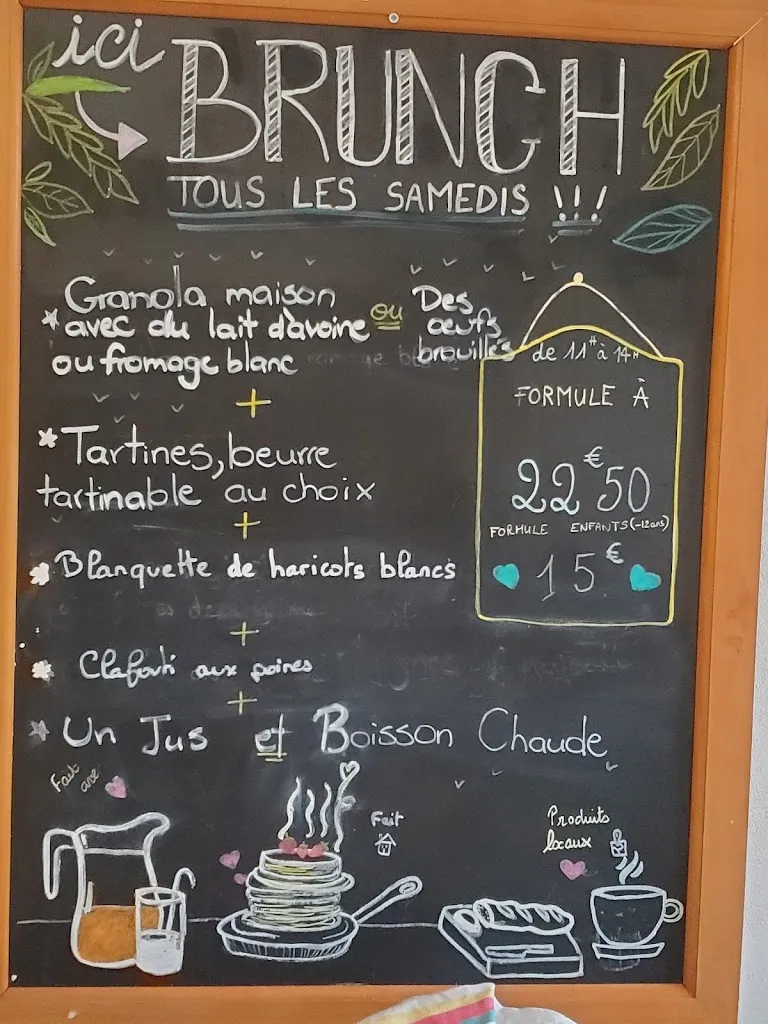 ici
BRUNCH
TOUS LES SAMEDIS !!!
* Granola maison
avec du lait d'avoine
ou fromage blanc
ou
Des
œufs
brouillés
+
* Tartines, beurre
tartinable au choix
+
* Blanquette de haricots blancs
+
* Clafouti aux poires
+
* Un Jus et Boisson Chaude
de 11H à 14H
FORMULE À
22€50
FORMULE ENFANTS (-12ans)
15€
Fait
avec
Fait
Produits
locaux